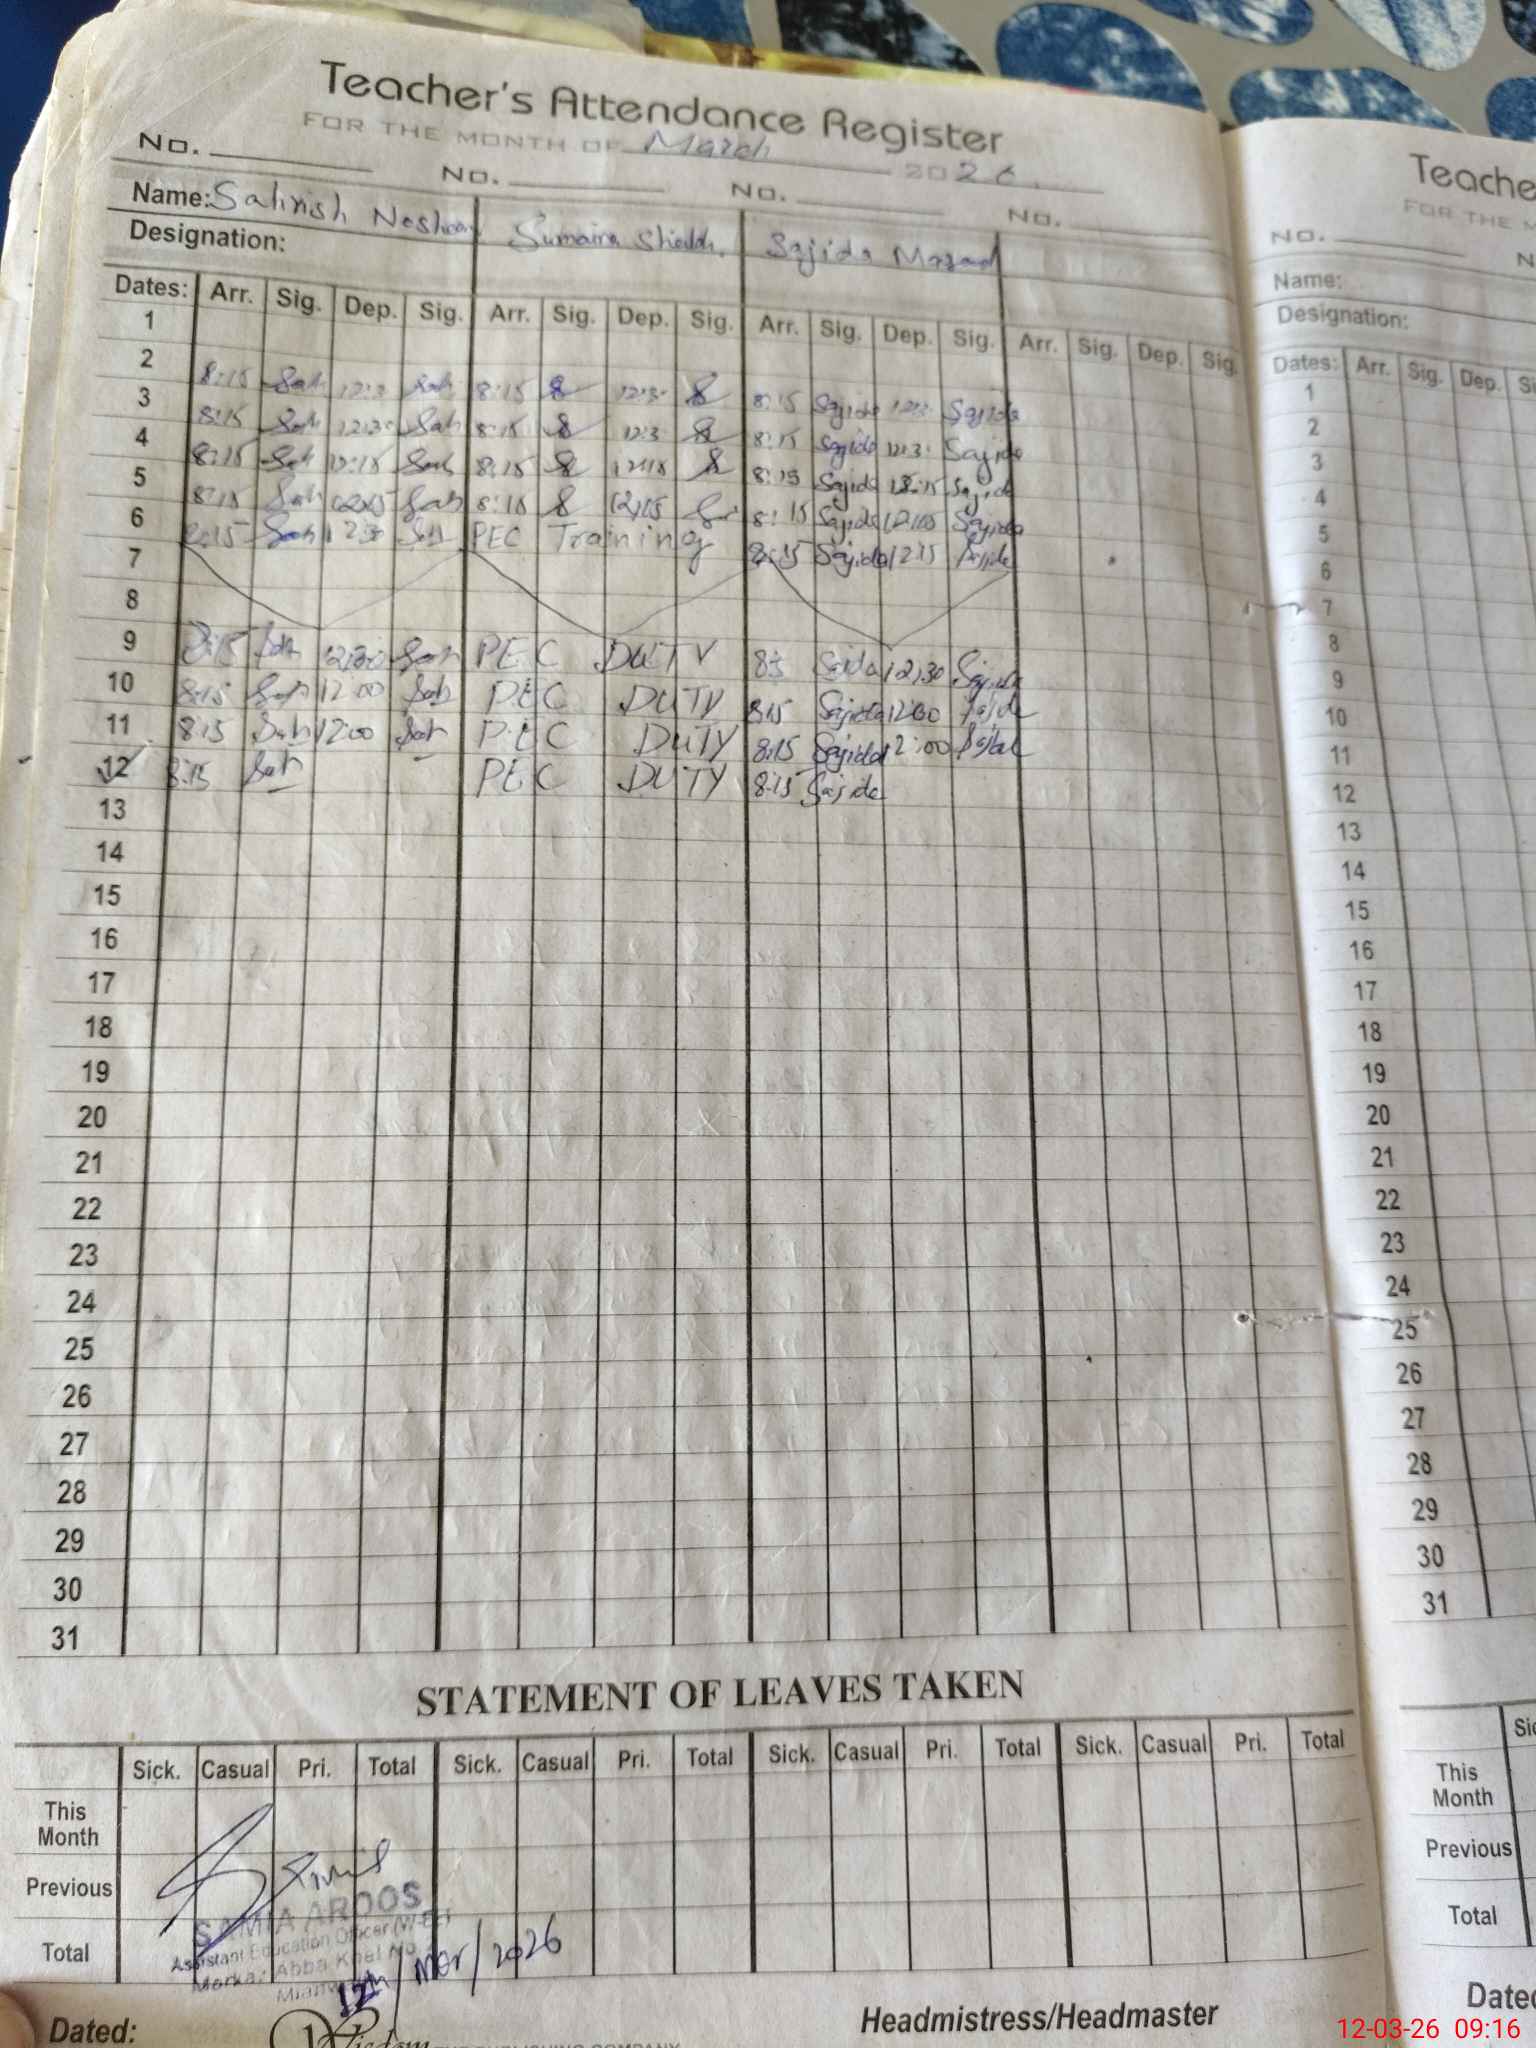 Teacher's Attendance Register
FOR THE MONTH OF March 2026
No. No. No. No.
Name: Sahrish Sumaira Sajida
Designation:
Dates: Arr. Sig. Dep. Sig. Arr. Sig. Dep. Sig. Arr. Sig. Dep. Sig. Arr. Sig. Dep. Sig.
1
2 8:15 Sah 12:3 Sah 8:15 12:3 8:15 Sajida 12:3 Sajida
3 8:15 Sah 12:30 Sah 8:15 12:3 8:15 Sajida 12:3 Sajida
4 8:15 Sah 12:15 Sah 8:15 12:15 8:15 Sajida 12:15 Sajida
5 8:15 Sah 12:15 Sah 8:15 12:15 8:15 Sajida Sajida
6 8:15 Sah 12:30 Sah PEC Training 8:15 Sajida 12:15 Sajida
7
8
9 8:15 Sah 12:30 Sah PEC DUTY 12:30 Sajida
10 8:15 Sah 12:00 Sah PEC DUTY 8:15 Sajida 12:00 Sajida
11 8:15 Sah 12:00 Sah PEC DUTY 8:15 Sajida 12:00
12 8:15 Sah PEC DUTY 8:15 Sajida
13
14
15
16
17
18
19
20
21
22
23
24
25
26
27
28
29
30
31
STATEMENT OF LEAVES TAKEN
Sick. Casual Pri. Total Sick. Casual Pri. Total Sick. Casual Pri. Total Sick. Casual Pri. Total
This Month
Previous
Total
SAMIA AROOS
Assistant Education Officer
Markaz Abba Khel
12th/Mar/2026
Dated: Headmistress/Headmaster
Wisdom
PUBLISHING COMPANY
Teache
FOR THE M
No. N
Name:
Designation:
Dates: Arr. Sig. Dep. Si
1
2
3
4
5
6
7
8
9
10
11
12
13
14
15
16
17
18
19
20
21
22
23
24
25
26
27
28
29
30
31
Sic
This Month
Previous
Total
Dated
12-03-26 09:16